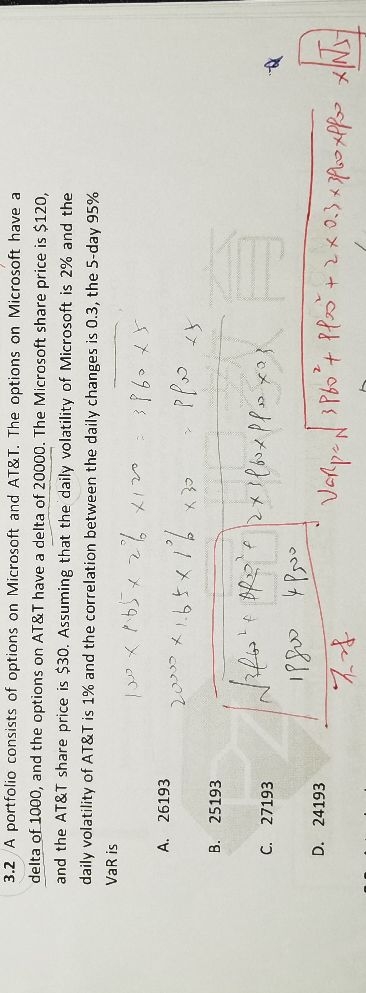 3.2 A portfolio consists of options on Microsoft and AT&T. The options on Microsoft have a
delta of 1000, and the options on AT&T have a delta of 20000. The Microsoft share price is $120,
and the AT&T share price is $30. Assuming that the daily volatility of Microsoft is 2% and the
daily volatility of AT&T is 1% and the correlation between the daily changes is 0.3, the 5-day 95%
VaR is
100 × 1.65 × 2% × 120 = 3960 × 5
A. 26193
20000 × 1.65 × 1% × 30 = 9900 × 5
B. 25193
2 × 3960 × 9900 × 0.3
C. 27193
19800 49500
D. 24193
VaRp = √3960² + 9900² + 2 × 0.3 × 3960 × 9900 × √5